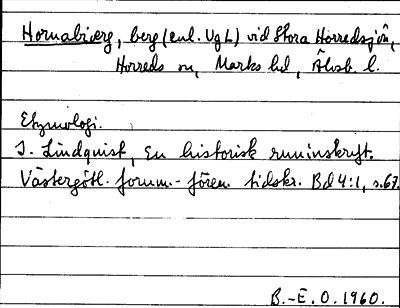 Hornabiærg, berg (enl. VgL) vid Stora Horredssjön,
Horreds sn, Marks hd, Älvsb. l.
Etymologi.
I. Lindquist, En historisk runinskrift.
Västergötl. fornm.-fören. tidskr. Bd 4:1, s. 67.
B.-E. O. 1960.